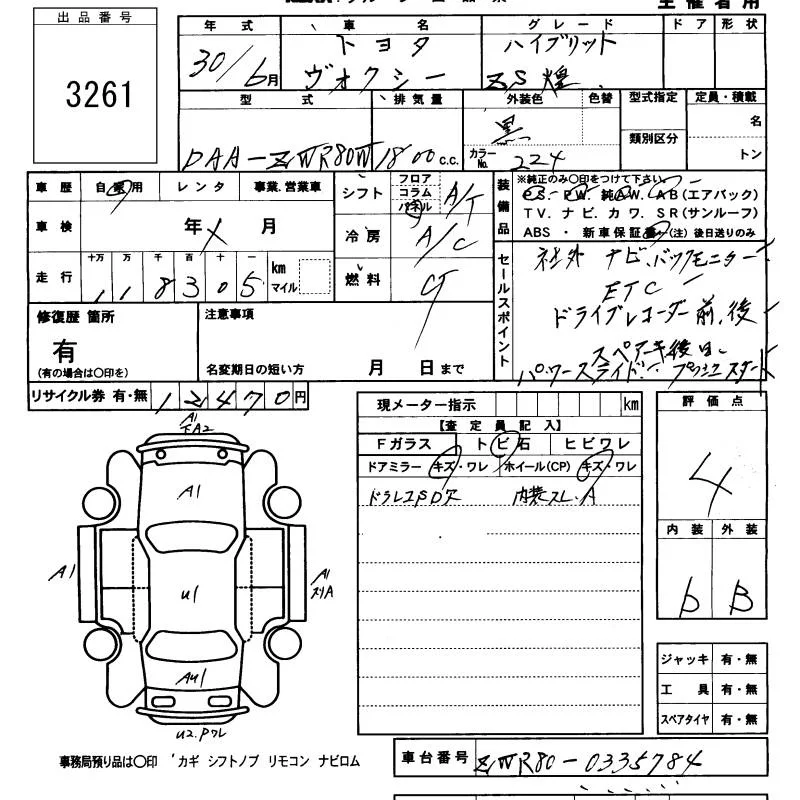 主催者用
出品番号
3261
年式 車名 グレード ドア 形状
30/6月 トヨタ ヴォクシー ハイブリット ZS煌
型式 排気量 外装色 色替 型式指定 定員・積載
DAA-ZWR80W 1800c.c. 黒 カラーNo. 224 類別区分 名 トン
車歴 自家用 レンタ 事業.営業車
シフト フロア コラム パネル A/T
装備品 ※純正のみ〇印をつけて下さい。
PS. PW. 純AW. AB(エアバック)
TV. ナビ. カワ. SR(サンルーフ)
ABS ・ 新車保証書 (注) 後日送りのみ
車検 年 月
冷房 A/C
走行 十万 万 千 百 十 一
118305 km マイル
燃料
セールスポイント
社外 ナビ、バックモニター
ETC
ドライブレコーダー 前,後
スペアキ後日
パワースライド プッシュスタート
修復歴 箇所
有
(有の場合は〇印を)
注意事項
名変期日の短い方 月 日まで
リサイクル券 有・無 12470円
現メーター指示 km
【査定員記入】
Fガラス トビ石 ヒビワレ
ドアミラー キズ・ワレ ホイール(CP) キズ・ワレ
内装スレ.A
評価点
4
内装 外装
b B
A1
下A2
A1
A1
A1
スリA
U1
AU1
U2.Pワレ
ジャッキ 有・無
工具 有・無
スペアタイヤ 有・無
事務局預り品は〇印 カギ シフトノブ リモコン ナビロム
車台番号 ZWR80-0335784